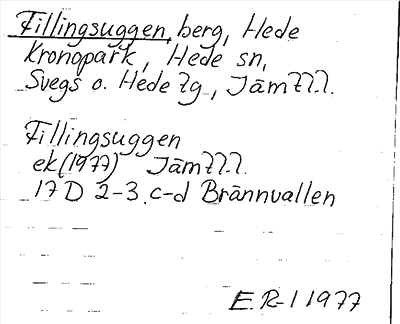 Fillingsuggen, berg, Hede
Kronopark, Hede sn,
Svegs o. Hede tg, Jämtl.l.
Fillingsuggen
ek(1977) Jämtl.l.
17 D 2-3 c-d Brännvallen
E.R-l 1977